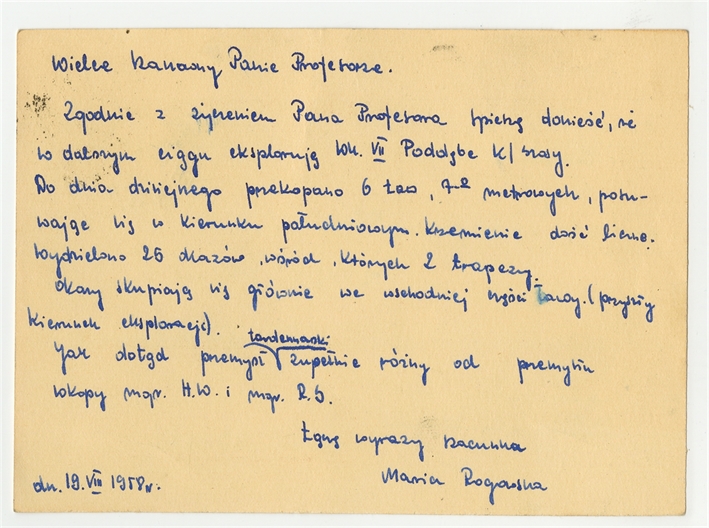 Wielce Szanowny Panie Profesorze.
Zgodnie z życzeniem Pana Profesora spieszę donieść, że
w dalszym ciągu eksplorują Wk. VII Poddębe k/ szosy.
Do dnia dzisiejszego przekopano 6 ław, metrowych, posu-
wając się w kierunku południowym. Krzemienie dość liczne.
Wydzielono 26 okazów, wśród, których 2 trapezy.
Okazy skupiają się głównie we wschodniej części ławy. (przyszły
kierunek eksploracji).
tardenuaski
Jak dotąd przemysł zupełnie różny od przemysłu
wkopy mgr. H.W. i mgr. R.S.
Łączę wyrazy szacunku
Maria Rogowska
dn. 19.VIII 1958r.